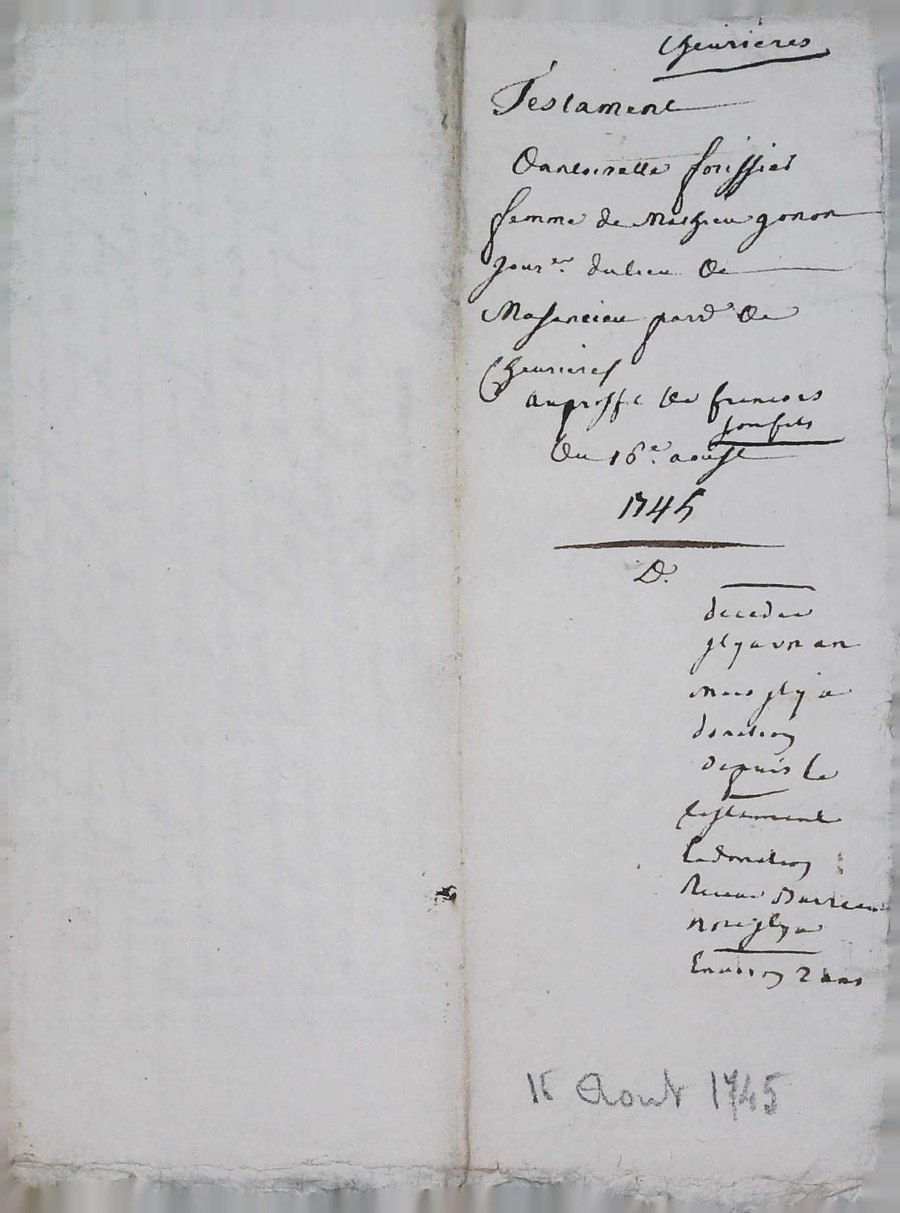 Cheurieres
Testament
Dantoinette forissier
femme de Mathieu gonon
Jour.er dulieu de
Masancieu parr.e de
Cheurieres
auproffit de francois
sonfils
Du 16.e aoust
1745
D.
decedee
jlyaunan
mais jlya
donation
depuis le
testament
Ladonation
Receue
notjlya
Environ 2 ans
16 Aout 1745